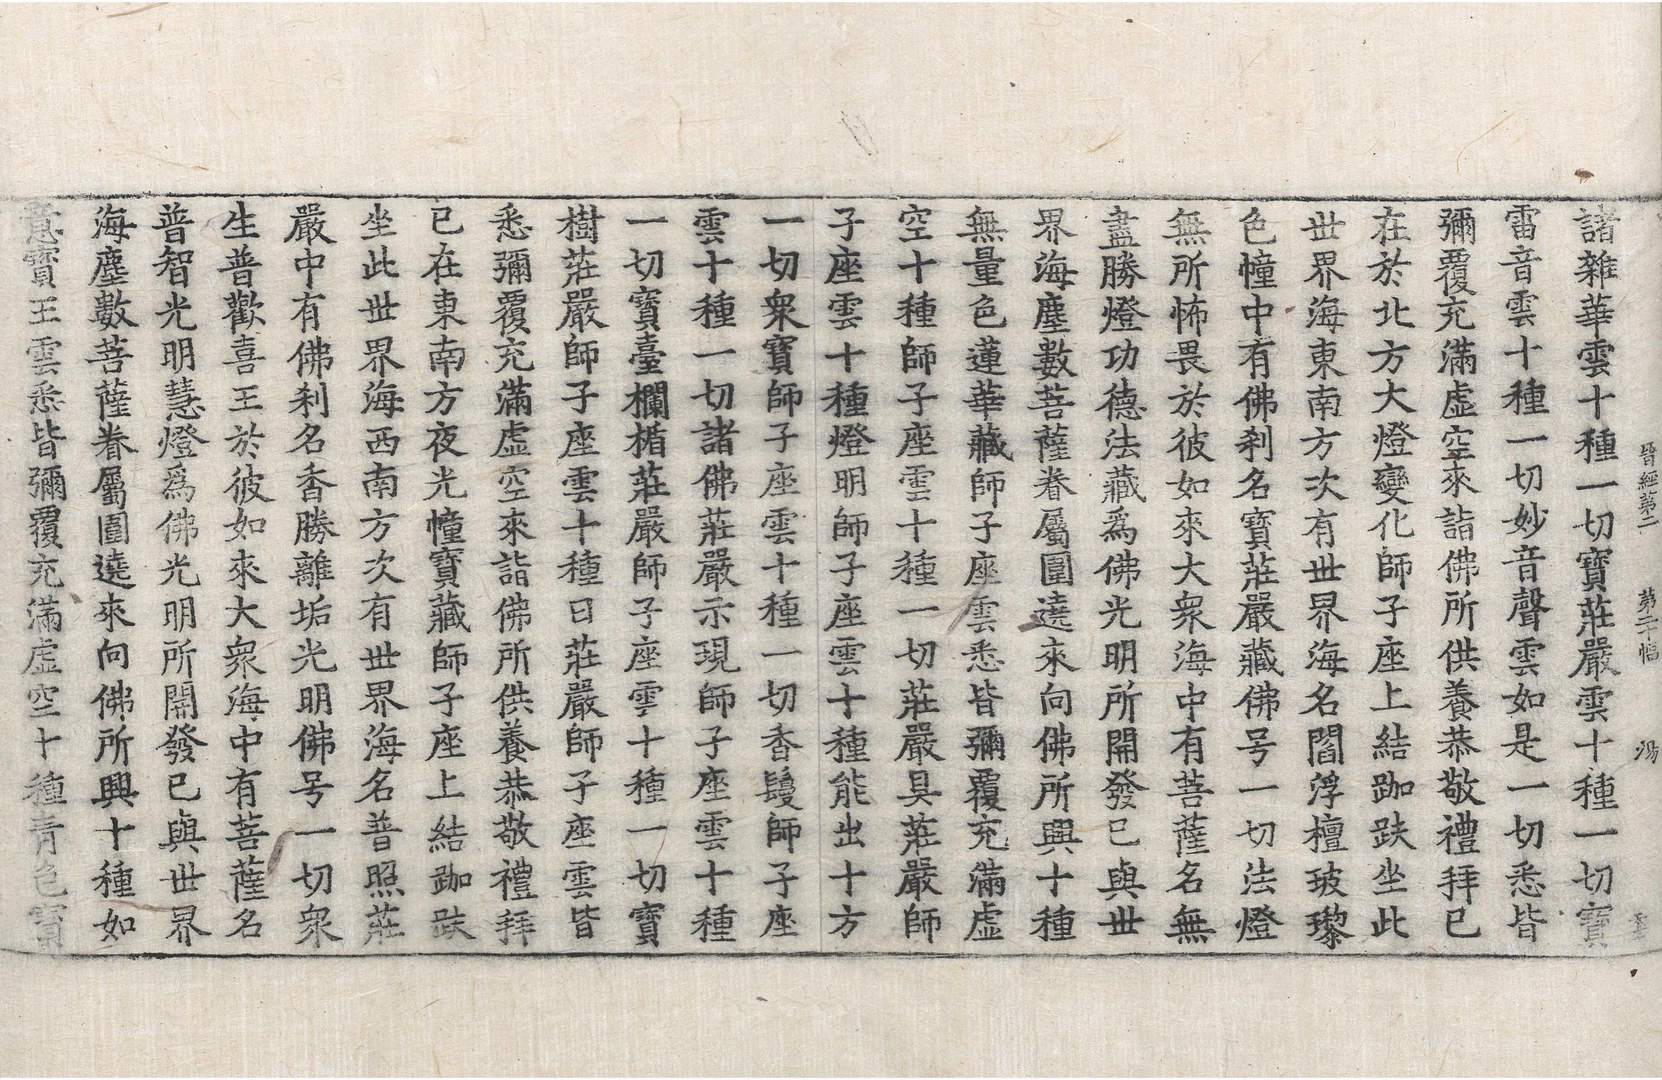 晉經第二 第二十幅 湯
諸雜華雲十種一切寶莊嚴雲十種一切寶
雷音雲十種一切妙音聲雲如是一切悉皆
彌覆充滿虛空來詣佛所供養恭敬禮拜已
在於北方大燈變化師子座上結跏趺坐此
世界海東南方次有世界海名閻浮檀玻瓈
色幢中有佛刹名寶莊嚴藏佛号一切法燈
無所怖畏於彼如來大衆海中有菩薩名無
盡勝燈功德法藏爲佛光明所開發已與世
界海塵數菩薩眷屬圍遶來向佛所興十種
無量色蓮華藏師子座雲悉皆彌覆充滿虛
空十種師子座雲十種一切莊嚴具莊嚴師
子座雲十種燈明師子座雲十種能出十方
一切衆寶師子座雲十種一切香鬘師子座
雲十種一切諸佛莊嚴示現師子座雲十種
一切寶臺欄楯莊嚴師子座雲十種一切寶
樹莊嚴師子座雲十種日莊嚴師子座雲皆
悉彌覆充滿虛空來詣佛所供養恭敬禮拜
已在東南方夜光幢寶藏師子座上結跏趺
坐此世界海西南方次有世界海名普照莊
嚴中有佛刹名香勝離垢光明佛号一切衆
生普歡喜王於彼如來大衆海中有菩薩名
普智光明慧燈爲佛光明所開發已與世界
海塵數菩薩眷屬圍遶來向佛所興十種如
意寶王雲悉皆彌覆充滿虛空十種青色寶